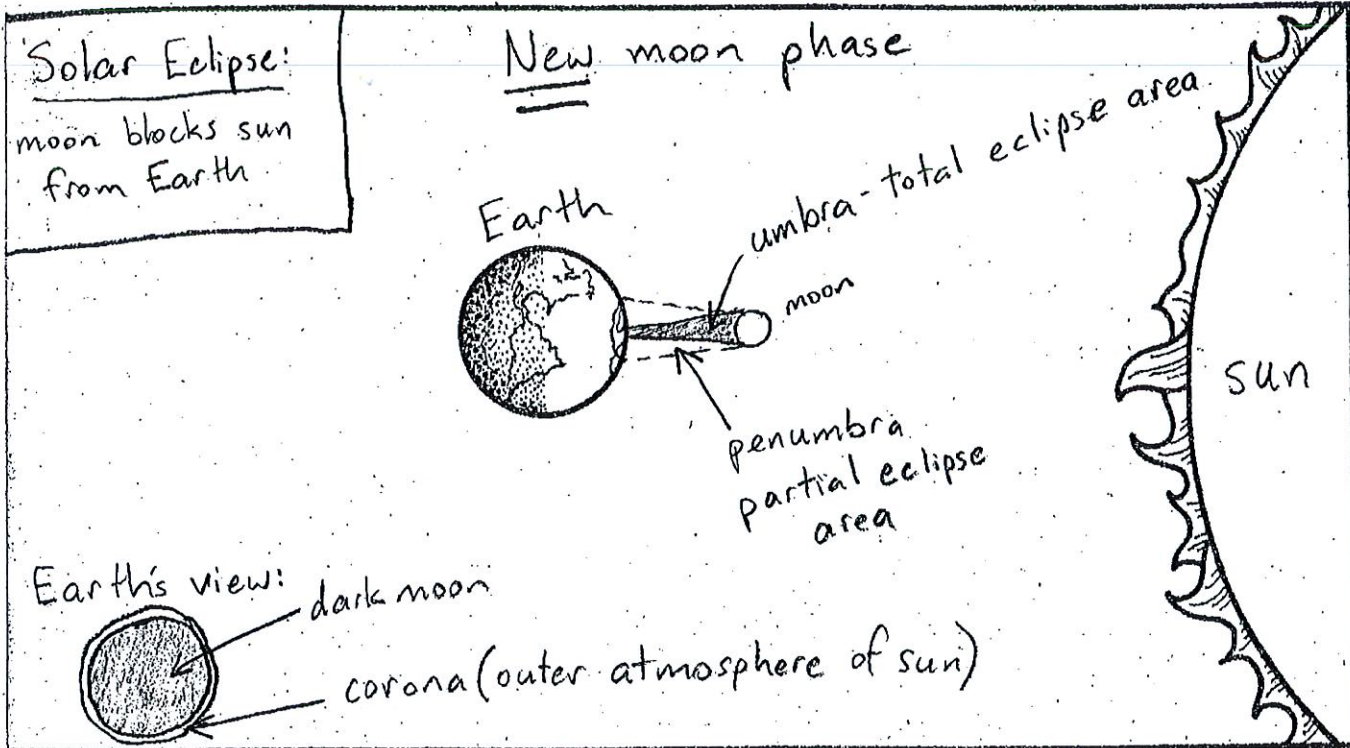 Solar Eclipse:
moon blocks sun
from Earth
New moon phase
umbra-total eclipse area
Earth
moon
sun
penumbra
partial eclipse
area
Earth's view:
dark moon
corona (outer atmosphere of sun)